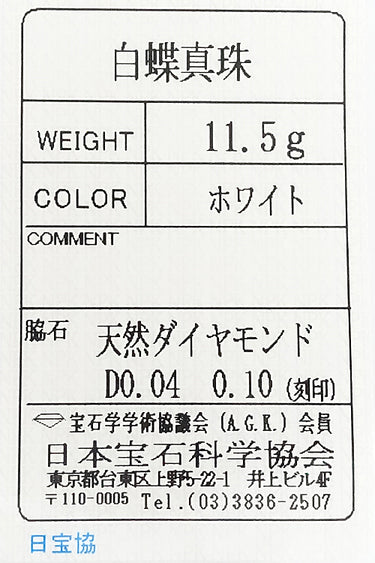 白蝶真珠
WEIGHT 11.5g
COLOR ホワイト
COMMENT
脇石 天然ダイヤモンド
D0.04 0.10 (刻印)
宝石学学術協議会(A.G.K.)会員
日本宝石科学協会
東京都台東区上野5-22-1 井上ビル4F
〒110-0005 Tel.(03)3836-2507
日宝協